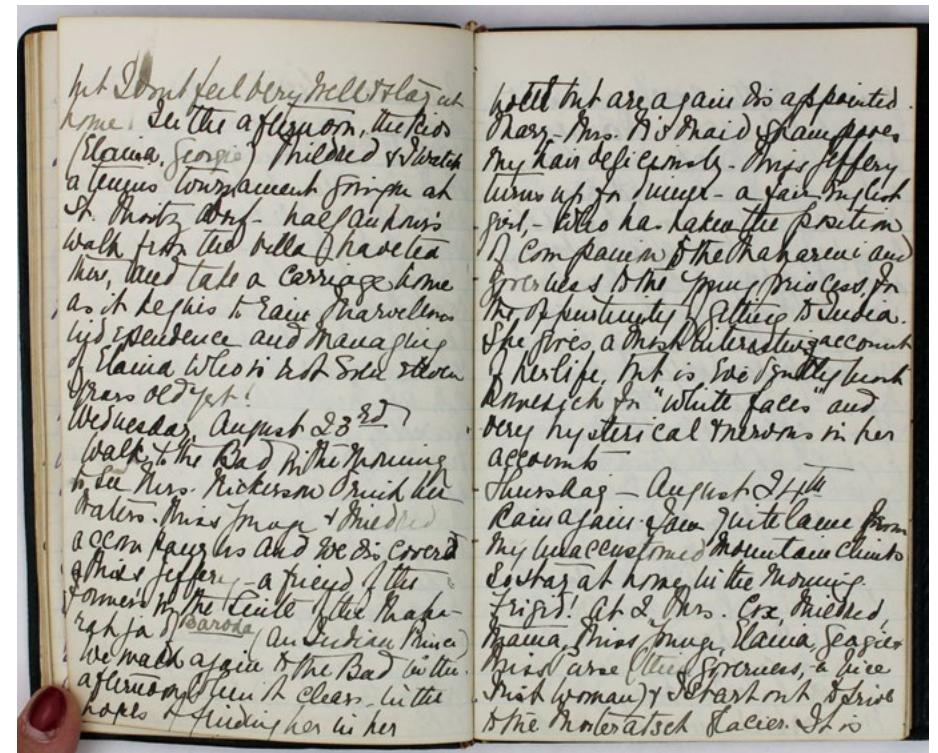 but I don't feel very well & stay at
home. In the afternoon, the kids
(Elaina, Georgie) Mildred & I watch
a tennis tournament going on at
St. Moritz Dorf - half an hour's
walk from the villa & have tea
there, and take a carriage home
as it begins to rain. Marvellous
independence and managing
of Elaina who is not even eleven
years old yet!
Wednesday, August 23rd
Walk to the Bad in the morning
to see Mrs. Nickerson drink her
waters. Miss Young & Mildred
accompany us and we discovered
a Miss Jeffery - a friend of the
former's in the Suite of the Maha-
rahja of Baroda (an Indian Prince)
We walk again to the Bad in the
afternoon when it clears, in the
hopes of finding her in her
hotel but are again disappointed
Mary - Mrs. N's Maid shampooes
my hair deliciously - Miss Jeffery
turns up for dinner - a fair English
girl, - who has taken the position
of companion to the Maharani and
governess to the young princess, for
the opportunity of getting to India.
She gives a most interesting account
of her life, but is evidently much
homesick for "white faces" and
very hysterical & nervous in her
accounts
Thursday - August 24th
Rain again. Am quite lame from
my unaccustomed mountain climb
so stay at home in the morning.
Frigid! At 2 Mrs. Cox, Mildred,
Mama, Miss Young, Elaina, Georgie &
Miss (their governess, a nice
Irish woman) & I start out to drive
to the Morteratsch Glacier. It is